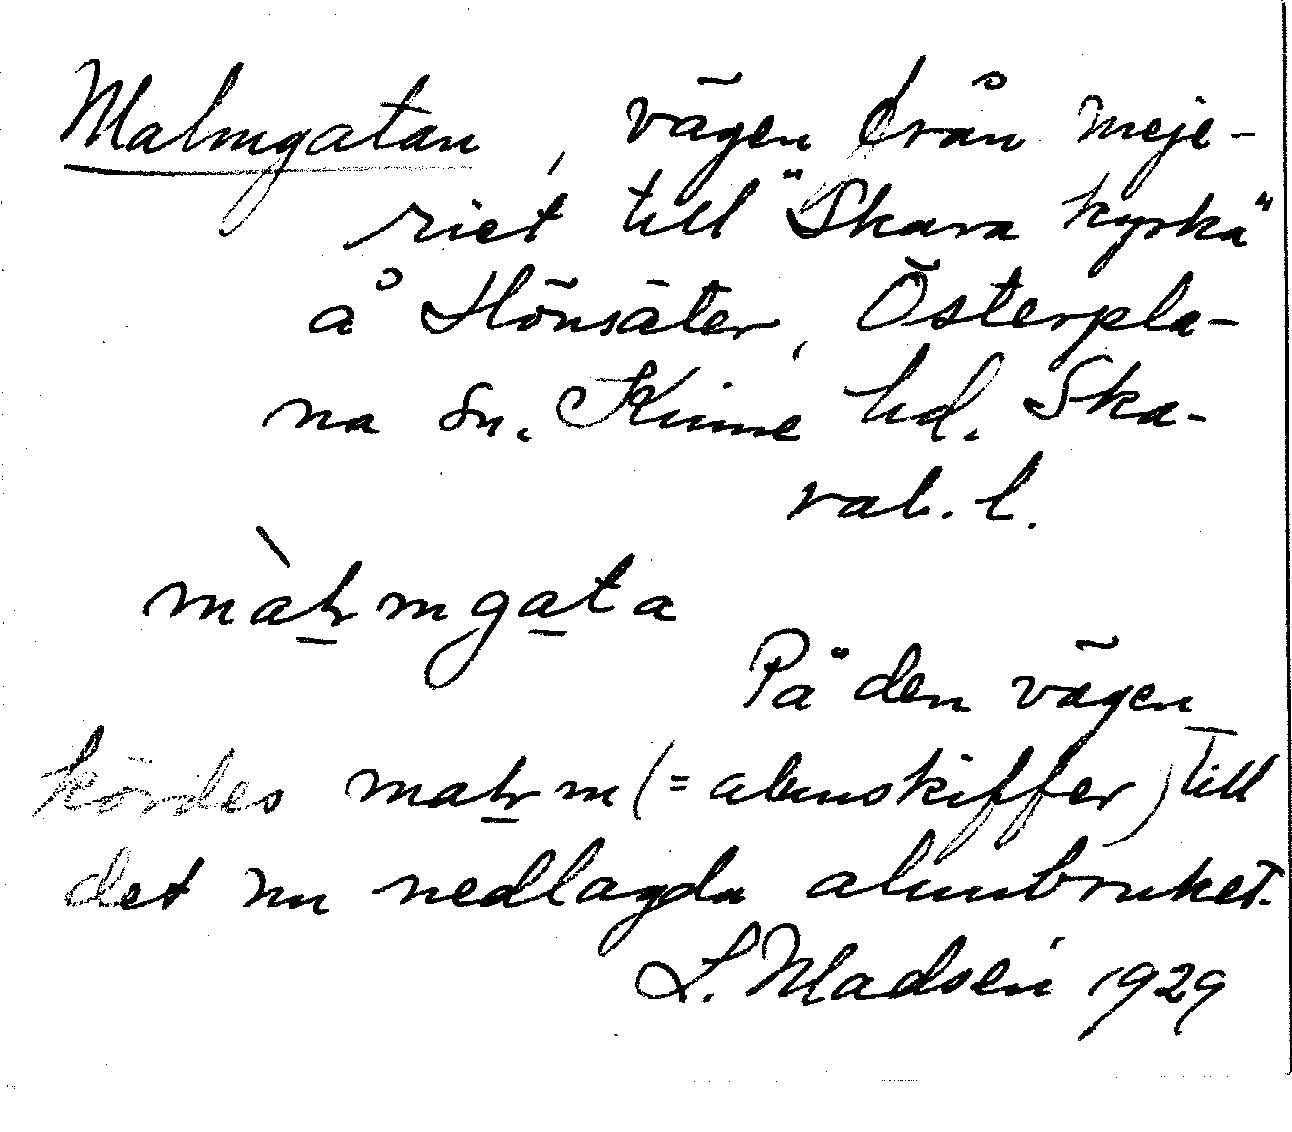 Malmgatan, vägen från meje-
riet till "Skara kyrka"
å Hönsäter, Österpla-
na sn. Kinne hd. Ska-
rab. l.
màhmgata
På den vägen
kördes mahm (= alunskiffer) till
det nu nedlagda alunbruket.
L. Madsén 1929